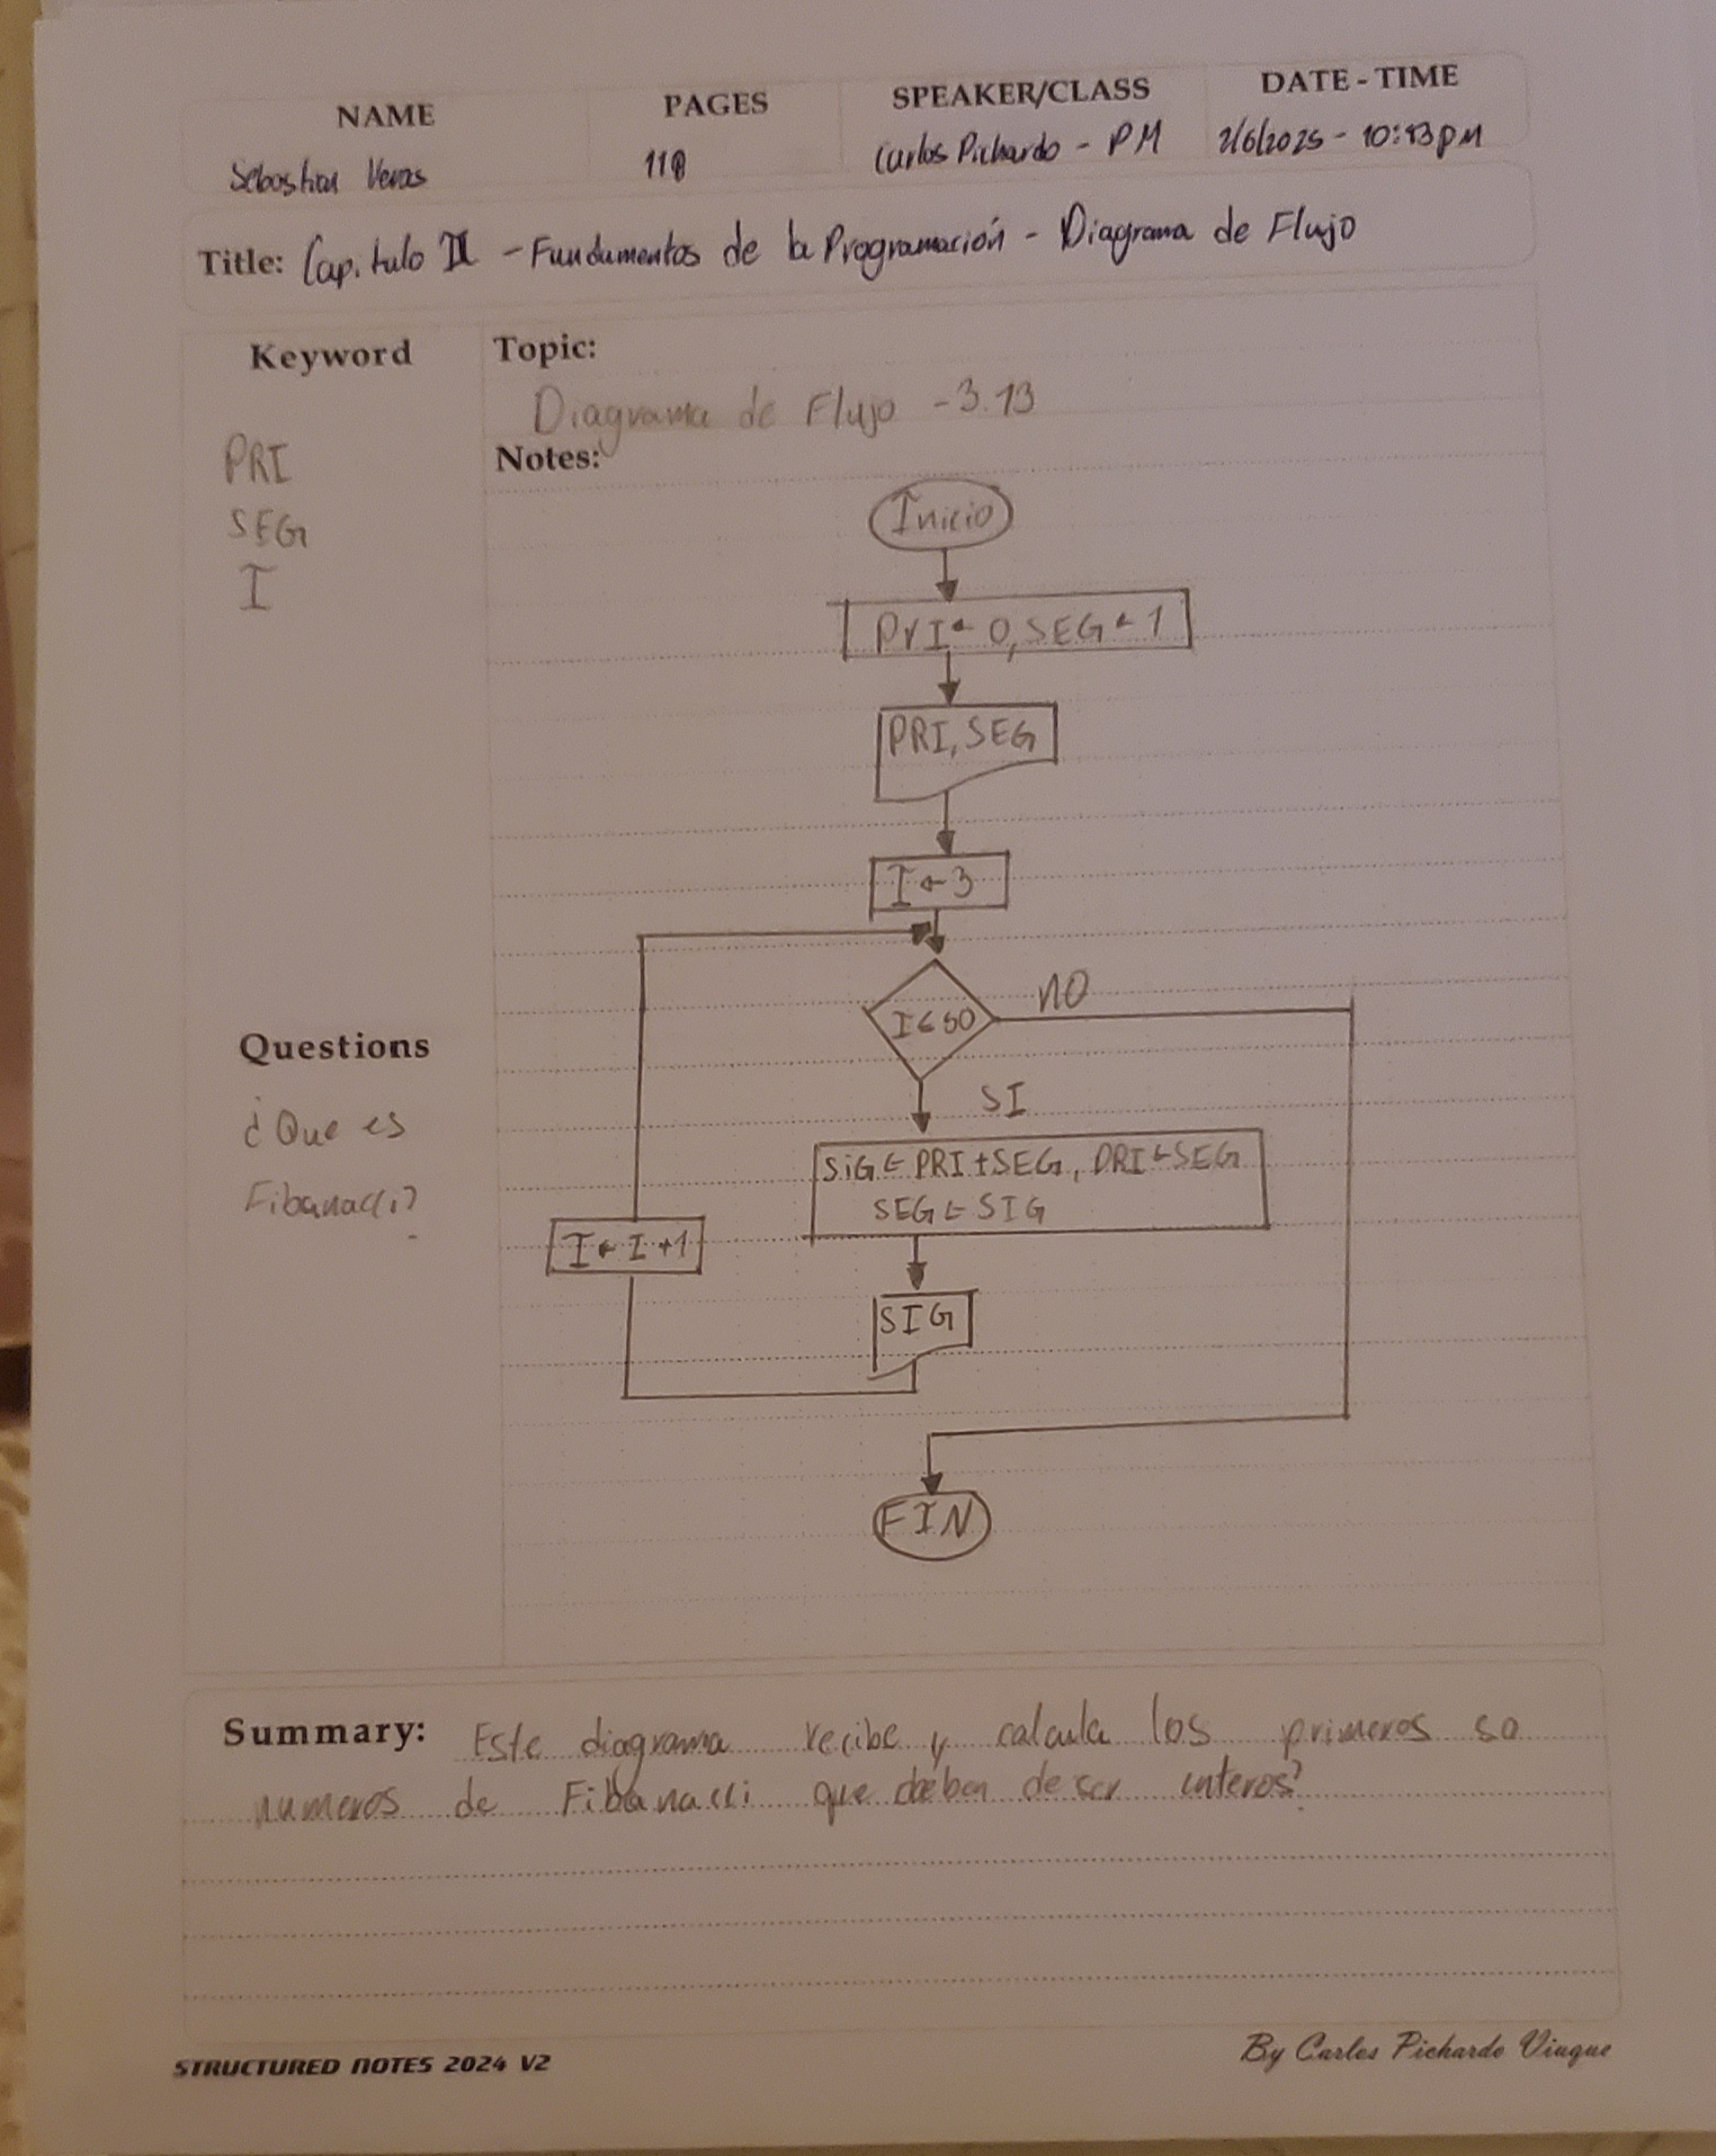 NAME PAGES SPEAKER/CLASS DATE - TIME
Sebastian Veras 118 Carlos Pichardo - PM 2/6/2025 - 10:53pm
Title: Capitulo II - Fundamentos de la Programación - Diagrama de Flujo
Keyword
PRI
SEG
I
Topic:
Diagrama de Flujo - 3.13
Notes:
Inicio
PrI ← 0, SEG ← 1
PRI, SEG
I ← 3
I ≤ 50
NO
SI
SiG ← PRI + SEG, PRI ← SEG
SEG ← SIG
I ← I + 1
SIG
FIN
Questions
¿Que es
Fibanacci?
Summary: Este diagrama recibe y calcula los primeros 50
numeros de Fibanacci que deben de ser enteros?
STRUCTURED NOTES 2024 V2
By Carlos Pichardo Viuque